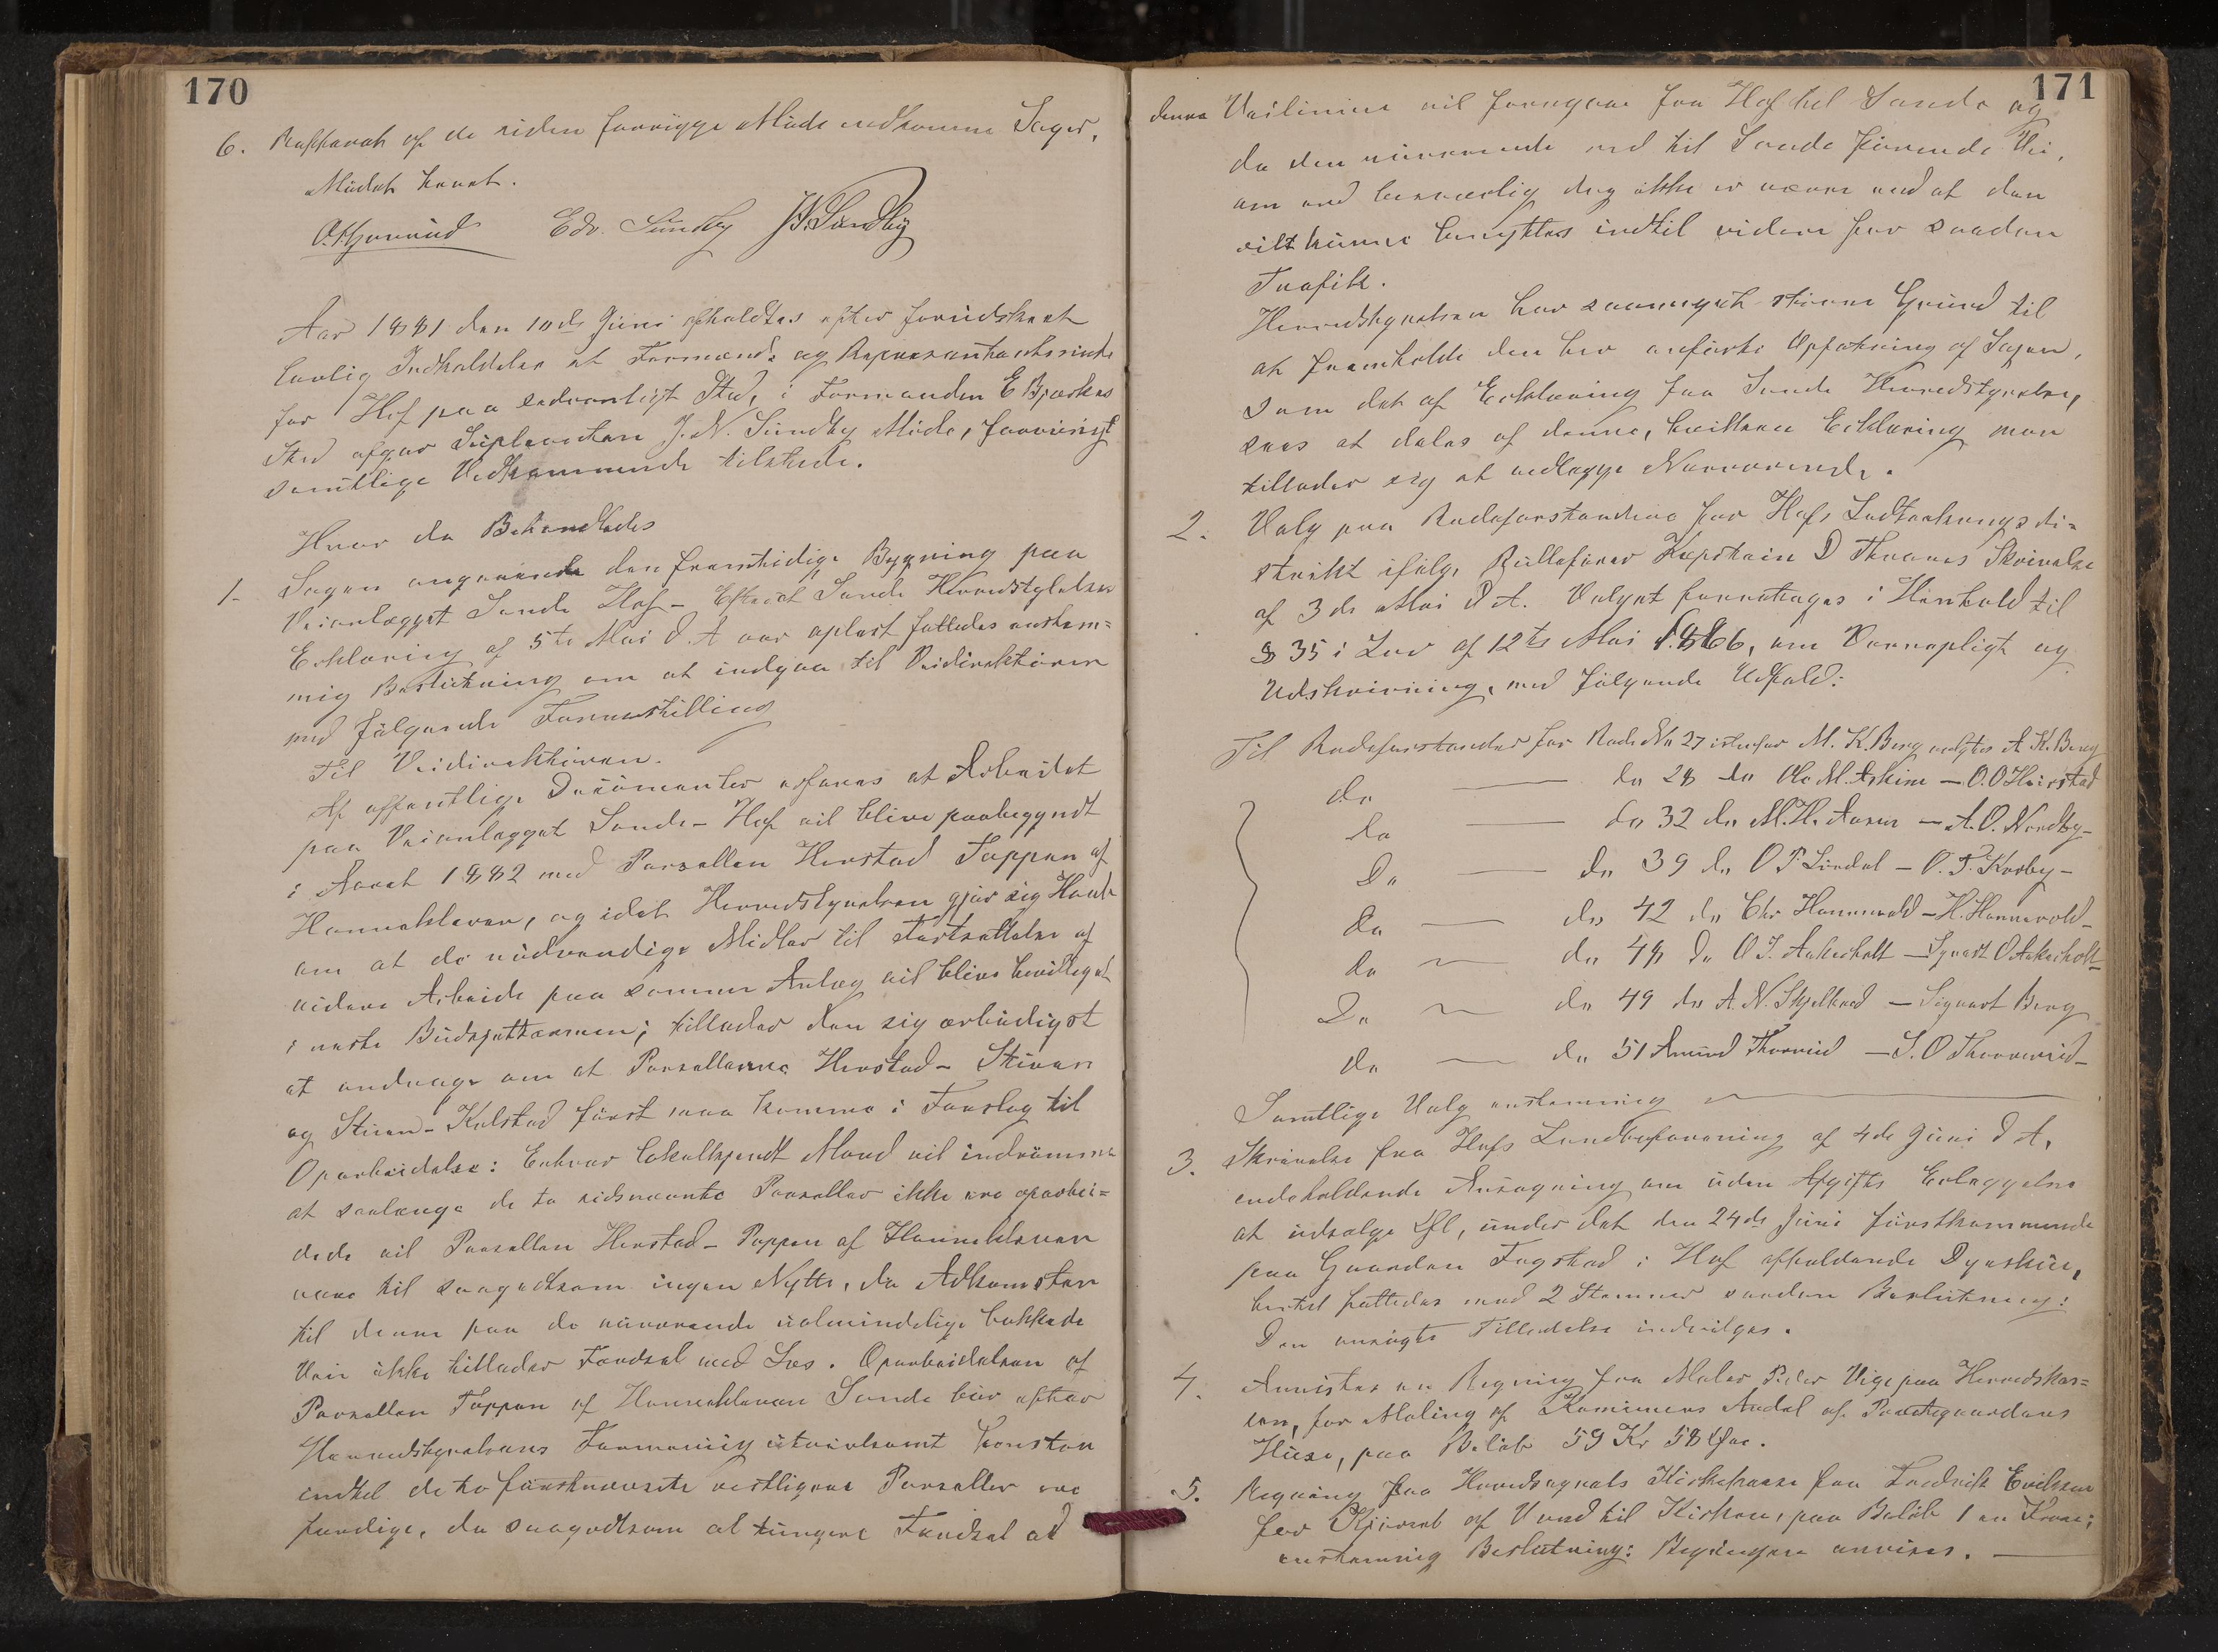 170
6. Refferat af de siden forrigge Møde indkomne Sager,
Mødet hævet.
Edv. Sundby J.N. Sundby
Aar 1881 den 10de Juni afholdtes efter forudskeet
lovlig Indkaldelse et Formænds og Repræsentantsmøde
for Hof paa sedvanligt Sted, i Formanden E Bjerkøs
Sted afgav Suplianten J. N. Sundby Møde, forøvrigt
samtlige Vedkommende tilstede.
Hvor da Behandledes
1. Sagen angaaende den fremtidige Bygning paa
Veianlægget Sande Hof - Efterat Sande Herredstyrelses
Erklæring af 5te Mai d. A var oplæst fattedes enstem=
mig Beslutning om at indgaa til Veidirektøren
med følgende Forestilling
Til Veidirektøren.
Af offentlige Documenter erfares at Arbeidet
paa Veianlægget Sande - Hof vil blive paabegyndt
i Aaret 1882 med Parsellen Herstad Toppen af
Hanekleven, og idet Herredstyrelsen gjør sig Haab
om at de nødvendige Midler til Fortsættelse af
videre Arbeide paa samme Anlæg vil blive bevilliget
i næste Budgettermin; tillader den sig ærbødigst
at andrage om at Parsellerne Herstad - Stuen
og Stuen - Kolstad først maa komme i Forslag til
Oparbeidelse: Enhver lokalkjendt Mand vil indrømme
at saalænge de to sidsnævnte Parseller ikke ere oparbei=
dede vil Parsellen Herstad - Toppen af Hanekleven
være til saagodtsom ingen Nytte, da Adkomsten
til denne paa de nuværende ualmindelige bakkede
Vei ikke tillader Færdsel med Læs. Oparbeidelsen af
Parsellen Toppen af Hanekleven Sande bør efter
Herredstyrelsens Formening utvivlsomt henstaa
indtil de to førstnævnte vestligere Parseller ere
færdige, da saagodtsom al tungere Færdsel ad
171
denne Veilinie vil foregaa fra Hof til Sande og
da den nuværende ned til Sande førende Vei,
om end besværlig dog ikke er værre end at den
vilt kunne benyttes indtil videre for saadan
Trafik.
Herredstyrelsen har saameget større Grund til
at fremholde den her anførte Opfatning af Sagen,
som det af Erklæring fra Sande Herredstyrelse,
sees at deles af denne, hvilken Erklæring man
tillader sig at vedlægge Nærværende.
2. Valg paa Rodeforstandere for Hofs Indtrækningsdi=
strikt ifølge Rulleførar Kaptain D Thranes Skrivelse
af 3de Mai d A. Valget foretoges i Henhold til
§ 35 i Lov af 12te Mai 1866, om Værnepligt og
Udskrivning, med følgende Udfald:
Til Rodeforstander for Rode No 27 istedfor M. K. Berg valgtes A. K. Berg
do — do 28 do Ole M. Askim — O. O Haerstad
do — do 32 do M. H. Aasen — A. O. Nordby -
Do — do 39 do O P. Lindal — O. P. Korsby -
do — do 42 do Chr Hannevold — H. Hannevold -
do — do 48 do O J. Aakerholt — Syvert O Aakerholt
Do — do 49 do A. N. Skjelbred — Sigvart Berg
do — do 51 Amund Thorrud — S. O Thorrud -
Samtlige Valg enstemmig
3. Skrivelse fra Hofs Landboforening af 4de Juni d A,
indeholdende Ansøgning om uden Afgifts Erlæggelse
at udsælge Øl, under det den 24de Juni førstkommende
paa Gaarden Fogstad i Hof afholdende Dyrskue,
hertil fattedes med 2 Stemmer saadan Beslutning:
Den ansøgte Tilladelse indvilges.
4. Anvistes en Regning fra Maler Peder Vige paa Herredskas=
sen, for Maling af Komunens Andel af Præstegaardens
Huse, paa Beløb 59 Kr 58 Øre.
5. Regning fra Hovedsognets Kirkekasse fra Fredrik Eriksen
for Kjørsel af Vand til Kirken, paa Beløb 1 en Krone;
enstemmig Beslutning: Regningen anvises.